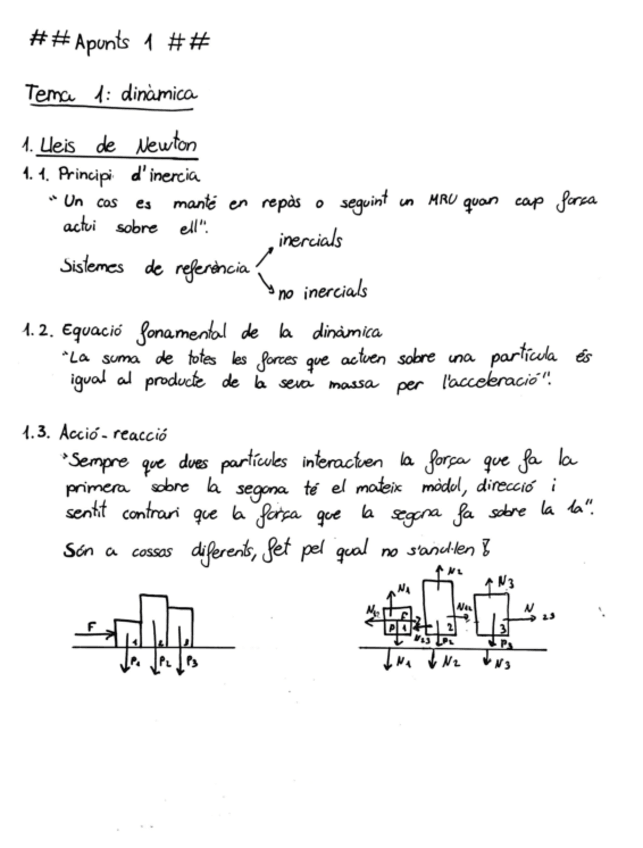 ##Apunts 1 ##
Tema 1: dinàmica
1. Lleis de Newton
1.1. Principi d'inercia
"Un cos es manté en repòs o seguint un MRU quan cap força
actui sobre ell".
inercials
Sistemes de referència
no inercials
1.2. Equació fonamental de la dinàmica
"La suma de totes les forces que actuen sobre una partícula és
igual al producte de la seva massa per l'acceleració".
1.3. Acció-reacció
"Sempre que dues partícules interactuen la força que fa la
primera sobre la segona té el mateix mòdul, direcció i
sentit contrari que la força que la segona fa sobre la 1a".
Són a cossos diferents, fet pel qual no s'anul·len
F 1 2 3
P1 P2 P3
N1 N2 N3
F N
P 1 2 3 23
N23 P2 P3
N1 N2 N3